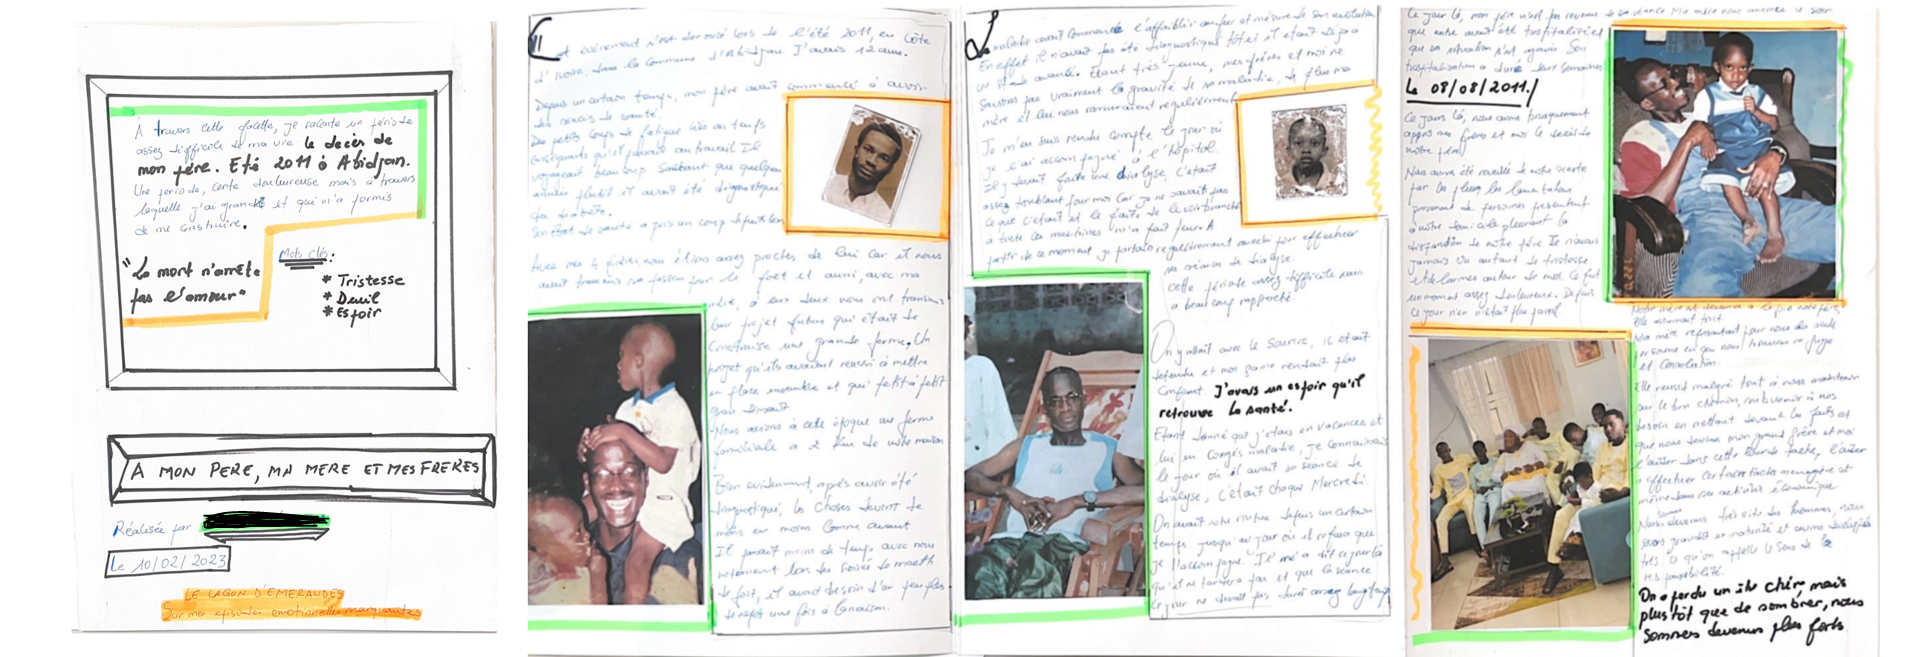 À travers cette facette, je raconte un période
assez difficile de ma vie le decès de
mon père. Eté 2011 à Abidjan.
Une période, certe douloureuse mais à travers
laquelle j'ai grandi et qui m'a permis
de me construire.
"La mort n'arrête
pas l'amour"
Mots clés:
* Tristesse
* Deuil
* Espoir
A MON PERE, MA MERE ET MES FRERES
Réalisée par
Le 10/02/2023
LE LAGON D'EMERAUDES
Sur mes épisodes emotionnelles marquantes
Cet evénement s'est deroulé lors de l'été 2011, en Côte
d'ivoire, dans la commune d'Abidjan. J'avais 12 ans.
Depuis un certain temps, mon père avait commencé à avoir
des soucis de santé.
Des petits coups de fatigue liés au temps
conséquents qu'il passait au travail Il
voyageait beaucoup Sachant que quelques
années plutôt il avait été diagnostiqué
du diabète.
Son état de santé a pris un coup depuis
Avec mes 4 frères, nous étions assez proches de lui Car il nous
avait transmis sa passion pour le foot et aussi, avec ma
mère, à eux deux nous ont transmis
leur projet future qui était de
Construire une grande ferme. Un
projet qu'ils avaient reussi à mettre
en place ensemble et qui petit à petit
grandissait.
Nous avions à cette époque une ferme
familiale a 2 km de notre maison
Bien evidemment, après avoir été
diagnostiqué, les choses devront de
moins en moins comme avant
Il passait moins de temps avec nous
notamment lors des soirées de match
de foot, il avait besoin d'un peu plus
de repos une fois à la maison.
La maladie avait commencé à l'affaiblir au fur et mésure de son evolution
En effet il n'avait pas été diagnostiqué tôt et il etait déjà a
un stade avancé. Étant très jeune, mes frères et moi ne
savions pas vraiment la gravité de sa maladie, de plus ma
mère et lui nous rassuraient regulièrement
Je m'en suis rendu compte le jour où
je l'ai accompagné à l'hôpital.
Il y devait faire une dialyse, c'était
assez troublant pour moi Car je ne savait pas
ce que c'était et le faite de le voir branché
à toute ces machines m'a fait peur. A
partir de ce moment, je partais regulièrement avec lui pour effectuer
ses séances de dialyse.
Cette période assez difficile nous
a beaucoup rapproché.
On y allait avec le sourire, il etait
détendu et mon père rendait plus
confiant J'avais un espoir qu'il
retrouve la santé.
Etant donné que j'étais en vacances et
lui en Congés maladie, je connaissais
le jour où il avait sa seance de
dialyse, c'était chaque Mercredi
On avait notre rentré depuis un certain
temps jusqu'au jour où il refusa que
je l'accompagne. Il m'a dit ce jour là
qu'il ne tardera pas et que la seance
ce jour ne devait pas durer assez longtemps
Ce jour là, mon père n'est pas revenu de sa séance Ma mère nous annonce le soir
que notre avait été hospitalisé et
que sa situation s'est agravée Son
hospitalisation a duré deux semaines
Le 08/08/2011.
Ce jours là, nous avons brusquement
appris mes frères et moi le decès de
notre père.
Nous avons été reveillé de notre sieste
par les pleurs les lamentations
provenant de personnes presentent
à notre domicile pleurant la
disparition de notre père Je n'avais
jamais vu autant de tristesse
et de larmes autour de moi. Ce fut
un moment assez douloureux. Depuis
ce jour rien n'était plus pareil
Notre mère est devenue à la fois notre père,
Elle assumait tout.
Ma mère representait pour nous la seule
personne en qui nous trouvions refuge
et consolation.
Elle reussit malgré tout à nous maintenir
sur le bon chemin, subvenir à nos
besoin en mettant devant les faits et
que nous devions mon grand frère et moi
l'aider dans cette lourde tache, l'aider
a effectuer certaines taches menagère et
même dans ses activités économique
Nous devenons très vite des hommes, nous
avons grandit en maturité et avons developpé
très ce qu'on appelle le sens de la
responsabilité.
On a perdu un être chèr, mais
plus tôt que de sombrer, nous
sommes devenus plus forts